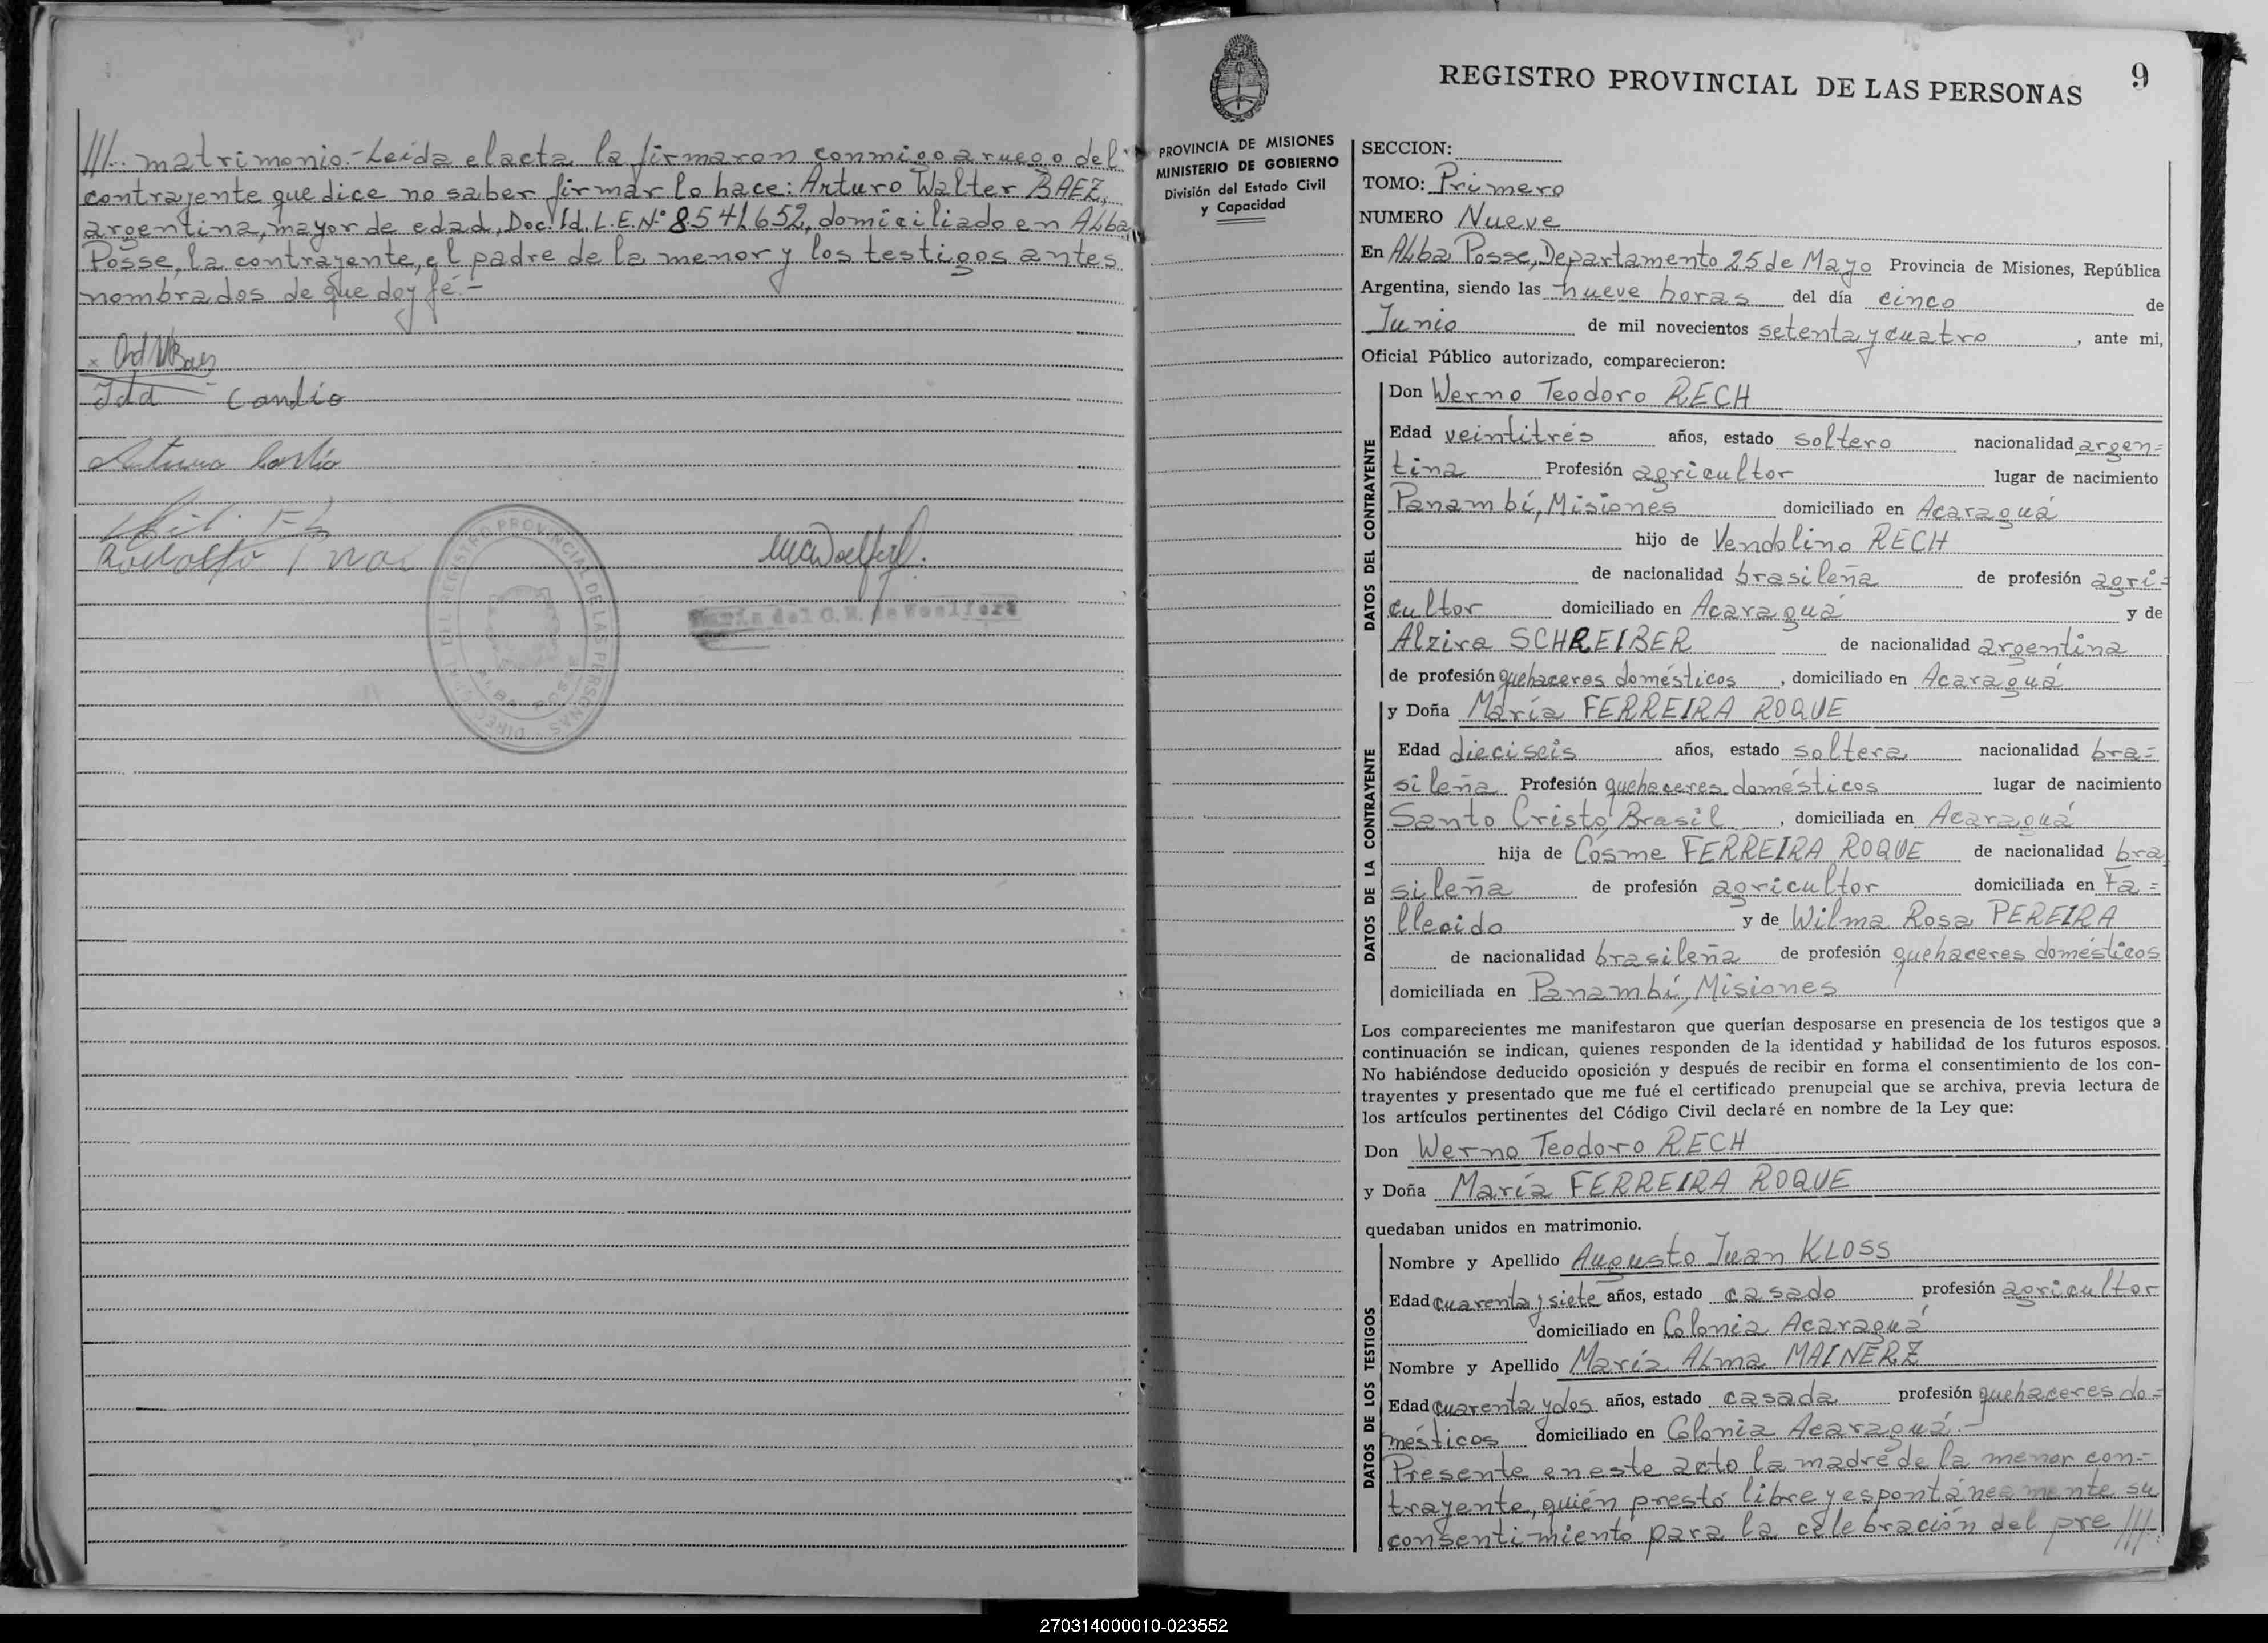 ///.. matrimonio.- Leída el acta la firmaron conmigo a ruego del
contrayente que dice no saber firmar lo hace: Arturo Walter BAEZ,
argentina, mayor de edad, Doc. Id. L.E.Nº 8.541.652, domiciliado en Alba
Posse, la contrayente, el padre de la menor y los testigos antes
nombrados de que doy fé.-
Ida Candio
Arturo Candio
Rodolfo
María del C. M. de Woelfert
REGISTRO PROVINCIAL DE LAS PERSONAS
ALBA POSSE
REGISTRO PROVINCIAL DE LAS PERSONAS 9
PROVINCIA DE MISIONES
MINISTERIO DE GOBIERNO
División del Estado Civil
y Capacidad
SECCION:
TOMO: Primero
NUMERO Nueve
En Alba Posse, Departamento 25 de Mayo Provincia de Misiones, República
Argentina, siendo las nueve horas del día cinco de
Junio de mil novecientos setenta y cuatro, ante mi,
Oficial Público autorizado, comparecieron:
DATOS DEL CONTRAYENTE
Don Werno Teodoro RECH
Edad veintitrés años, estado soltero nacionalidad argen=
tina Profesión agricultor lugar de nacimiento
Panambí, Misiones domiciliado en Acaraguá
hijo de Vendolino RECH
de nacionalidad brasileña de profesión agri=
cultor domiciliado en Acaraguá y de
Alzira SCHREIBER de nacionalidad argentina
de profesión quehaceres domésticos, domiciliado en Acaraguá
DATOS DE LA CONTRAYENTE
y Doña María FERREIRA ROQUE
Edad dieciseis años, estado soltera nacionalidad bra=
sileña Profesión quehaceres domésticos lugar de nacimiento
Santo Cristo, Brasil, domiciliada en Acaraguá
hija de Cosme FERREIRA ROQUE de nacionalidad bra
sileña de profesión agricultor domiciliada en Fa=
llecido y de Wilma Rosa PEREIRA
de nacionalidad brasileña de profesión quehaceres domésticos
domiciliada en Panambí, Misiones
Los comparecientes me manifestaron que querían desposarse en presencia de los testigos que a
continuación se indican, quienes responden de la identidad y habilidad de los futuros esposos.
No habiéndose deducido oposición y después de recibir en forma el consentimiento de los con-
trayentes y presentado que me fué el certificado prenupcial que se archiva, previa lectura de
los artículos pertinentes del Código Civil declaré en nombre de la Ley que:
Don Werno Teodoro RECH
y Doña María FERREIRA ROQUE
quedaban unidos en matrimonio.
DATOS DE LOS TESTIGOS
Nombre y Apellido Augusto Juan KLOSS
Edad cuarenta y siete años, estado casado profesión agricultor
domiciliado en Colonia Acaraguá
Nombre y Apellido María Alma MAINERZ
Edad cuarenta y dos años, estado casada profesión quehaceres do=
mésticos domiciliado en Colonia Acaraguá.-
Presente en este acto la madre de la menor con=
trayente, quién prestó libre y espontáneamente su
consentimiento para la celebración del pre ///.
270314000010-023552